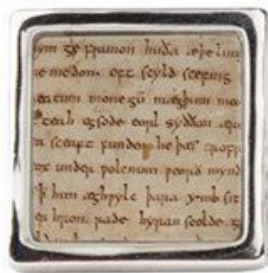 ym ge frunon huða æþe lin
re medon. oft scyld scefing
eatum monegū mægþum me
teah egsode eorl syððan ær
sceaft funden he þæs frofr
ox under ƿolcnum ƿeorð mynd
ꝥ him æghƿylc þara ymb sit
er hron rade hyran scolde g